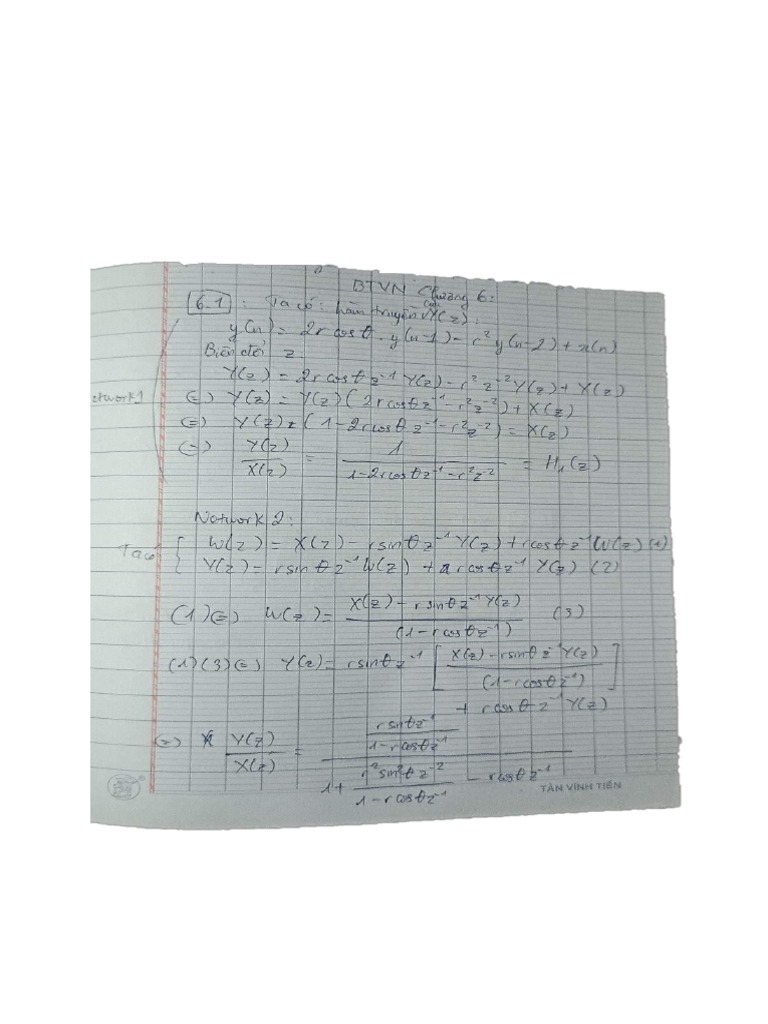 BTVN Chương 6:
6.1 : Ta có: hàm truyền của Y(z):
y(n) = 2r cosθ . y(n-1) - r² y(n-2) + x(n)
Biến đổi z
Y(z) = 2r cosθ z⁻¹ Y(z) - r² z⁻² Y(z) + X(z)
etwork 1
(=) Y(z) = Y(z) (2r cosθ z⁻¹ - r² z⁻²) + X(z)
(=) Y(z) × (1 - 2r cosθ z⁻¹ - r² z⁻²) = X(z)
(=) Y(z)/X(z) = 1/(1 - 2r cosθ z⁻¹ - r² z⁻²) = H₁(z)
Network 2:
Ta có { W(z) = X(z) - r sinθ z⁻¹ Y(z) + r cosθ z⁻¹ W(z) (1)
Y(z) = r sinθ z⁻¹ W(z) + r cosθ z⁻¹ Y(z) (2)
(1) (=) W(z) = (X(z) - r sinθ z⁻¹ Y(z))/(1 - r cosθ z⁻¹) (3)
(1)(3) (=) Y(z) = r sinθ z⁻¹ [(X(z) - r sinθ z⁻¹ Y(z))/(1 - r cosθ z⁻¹)]
+ r cosθ z⁻¹ Y(z)
(=) Y(z)/X(z) = (r sinθ z⁻¹/(1 - r cosθ z⁻¹))/(1 + r² sin²θ z⁻²/(1 - r cosθ z⁻¹) - r cosθ z⁻¹)
TÂN VĨNH TIẾN